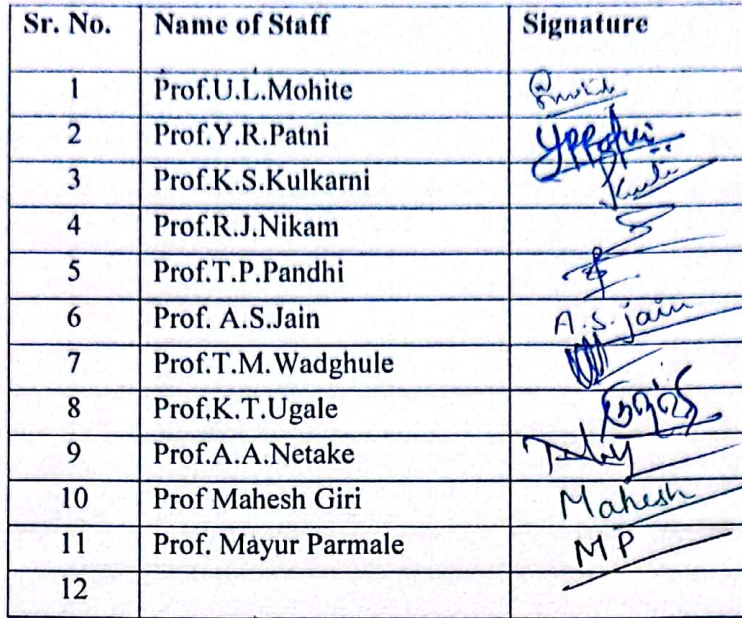 Sr. No. Name of Staff Signature
1 Prof.U.L.Mohite
2 Prof.Y.R.Patni
3 Prof.K.S.Kulkarni
4 Prof.R.J.Nikam
5 Prof.T.P.Pandhi
6 Prof. A.S.Jain A.S.Jain
7 Prof.T.M.Wadghule
8 Prof.K.T.Ugale
9 Prof.A.A.Netake
10 Prof Mahesh Giri Mahesh
11 Prof. Mayur Parmale MP
12